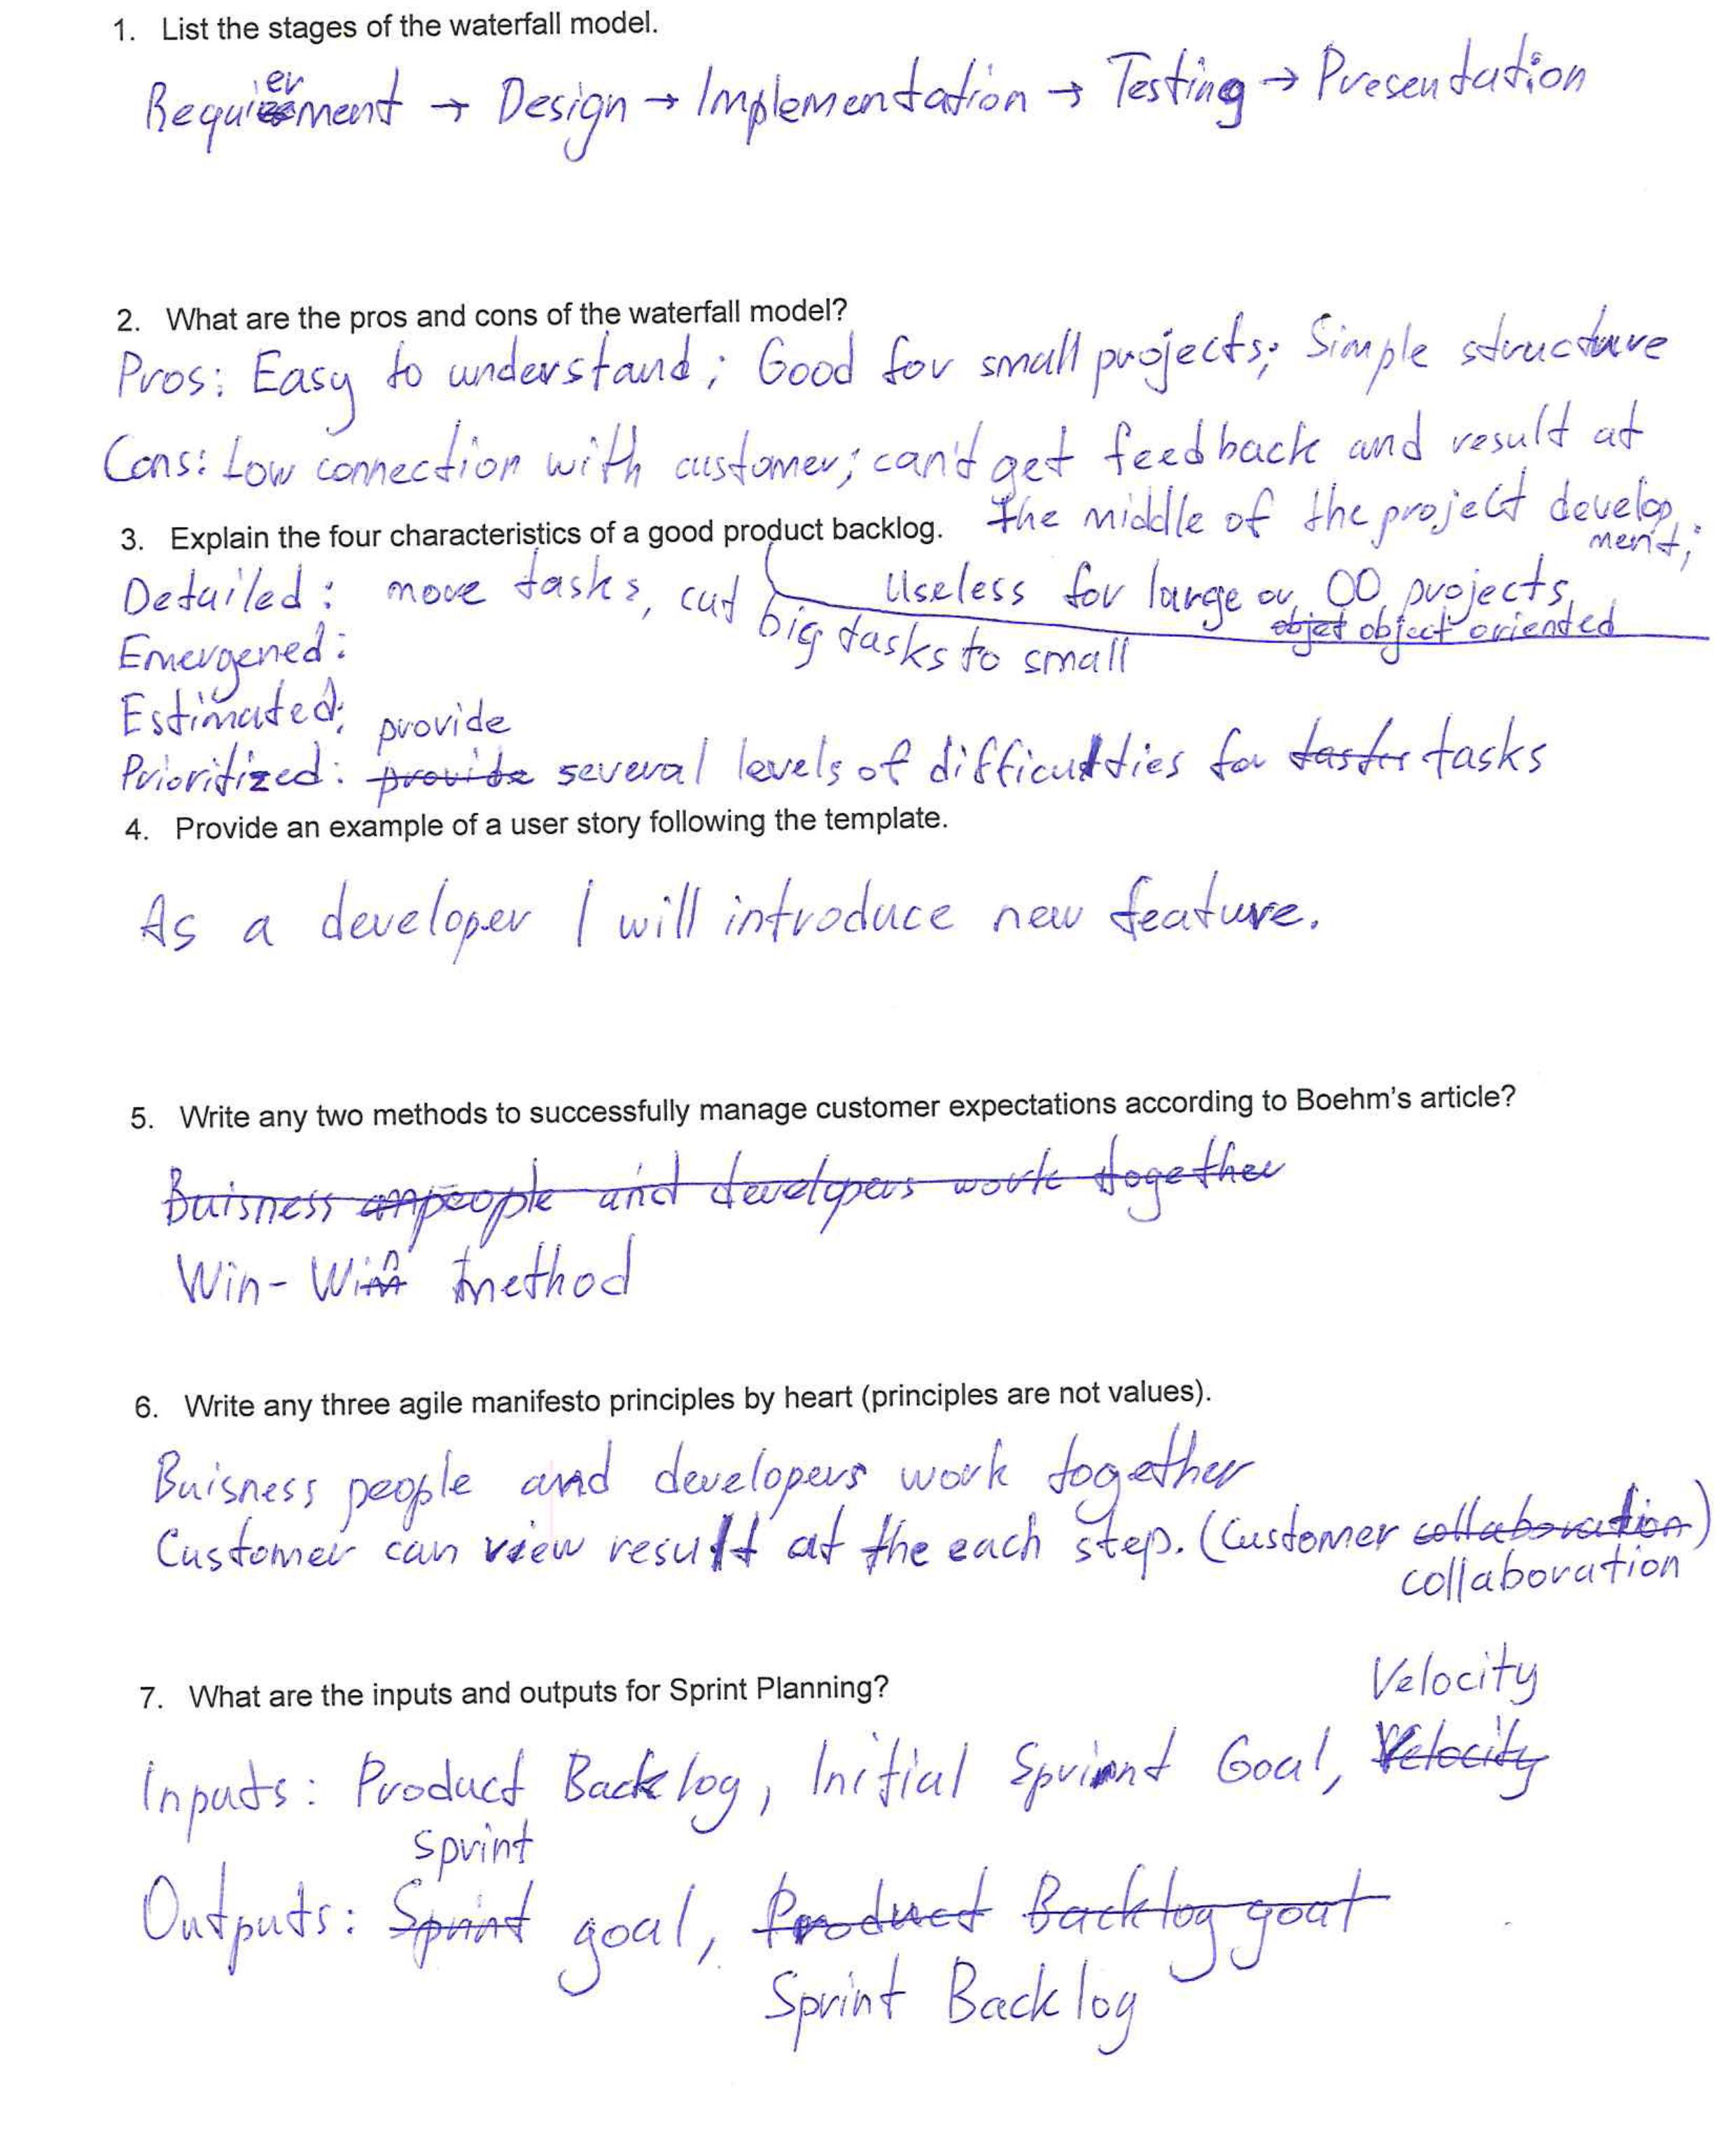 1. List the stages of the waterfall model.
Requierment → Design → Implementation → Testing → Presentation
2. What are the pros and cons of the waterfall model?
Pros: Easy to understand; Good for small projects; Simple structure
Cons: Low connection with customer; can't get feedback and result at
the middle of the project develop
ment;
Useless for large or OO projects
objet object oriented
3. Explain the four characteristics of a good product backlog.
Detailed: move tasks, cut
big tasks to small
Emergened:
Estimated:
provide
Prioritized: provide several levels of difficultties for taster tasks
4. Provide an example of a user story following the template.
As a developer I will introduce new feature.
5. Write any two methods to successfully manage customer expectations according to Boehm's article?
Buisness people and developers work together
Win-Win method
6. Write any three agile manifesto principles by heart (principles are not values).
Buisness people and developers work together
Customer can view result at the each step. (Customer collaboration)
collaboration
7. What are the inputs and outputs for Sprint Planning?
Velocity
Inputs: Product Backlog, Initial Sprint Goal, Velocity
Sprint
Outputs: Sprint goal, Product Backlog goal
Sprint Backlog